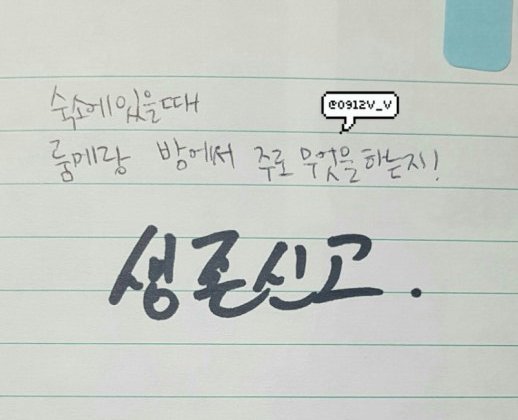 숙소에있을때
@0912V_V
룸메랑 방에서 주로 무엇을하는지!
생존신고.